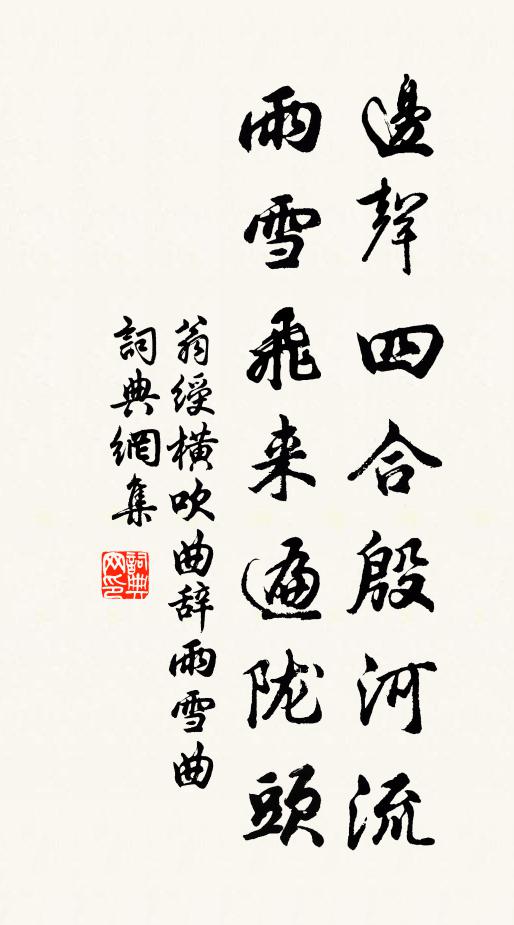 邊聲四合殷河流
雨雪飛来遍陇頭
翁綬横吹曲辞雨雪曲
詞典網集
詞典网印